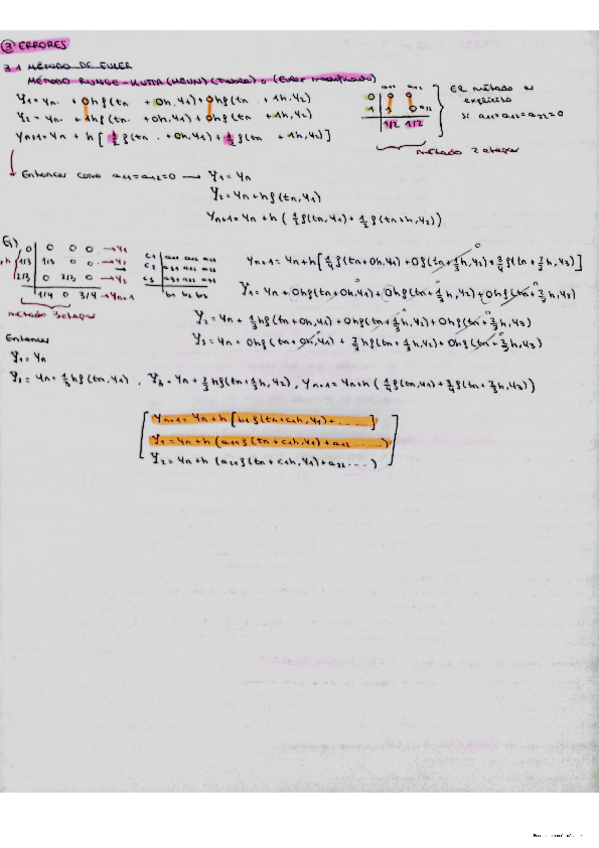 ③ ERRORES
3.1 MÉTODO DE EULER
MÉTODO RUNGE-KUTTA (HEUN) (Tabla) o (Euler modificado)
Y1 = yn + 0hf(tn + 0h, Y1) + 0hf(tn + 1h, Y2)
Y2 = yn + 1hf(tn + 0h, Y1) + 0hf(tn + 1h, Y2)
yn+1 = yn + h[1/2 f(tn + 0h, Y1) + 1/2 f(tn + 1h, Y2)]
a11 a12
0 0 0
1 1 0 a22
1/2 1/2
El método es
explícito
si a11=a12=a22=0
método 2 etapas
Entonces como a11=a12=0 → Y1=yn
Y2=yn+hf(tn,Y1)
yn+1=yn+h(1/2 f(tn,Y1)+1/2 f(tn+h,Y2))
Ej)
0 0 0 0 → Y1
1/3 1/3 0 0 → Y2
2/3 0 2/3 0 → Y3
1/4 0 3/4 → yn+1
método 3 etapas
c1 a11 a12 a13
c2 a21 a22 a23
c3 a31 a32 a33
b1 b2 b3
yn+1=yn+h[1/4 f(tn+0h,Y1)+0f(tn+1/3 h,Y2)+3/4 f(tn+2/3 h,Y3)]
Y1=yn+0hf(tn+0h,Y1)+0hf(tn+1/3 h,Y2)+0hf(tn+2/3 h,Y3)
Y2=yn+1/3 hf(tn+0h,Y1)+0hf(tn+1/3 h,Y2)+0hf(tn+2/3 h,Y3)
Y3=yn+0hf(tn+0h,Y1)+2/3 hf(tn+1/3 h,Y2)+0hf(tn+2/3 h,Y3)
Entonces
Y1=yn
Y2=yn+1/3 hf(tn,Y1), Y3=yn+2/3 hf(tn+1/3 h,Y2), yn+1=yn+h(1/4 f(tn,Y1)+3/4 f(tn+2/3 h,Y3))
yn+1=yn+h[b1f(tn+c1h,Y1)+.....]
Y1=yn+h(a11f(tn+c1h,Y1)+a12.....)
Y2=yn+h(a21f(tn+c1h,Y1)+a22...)